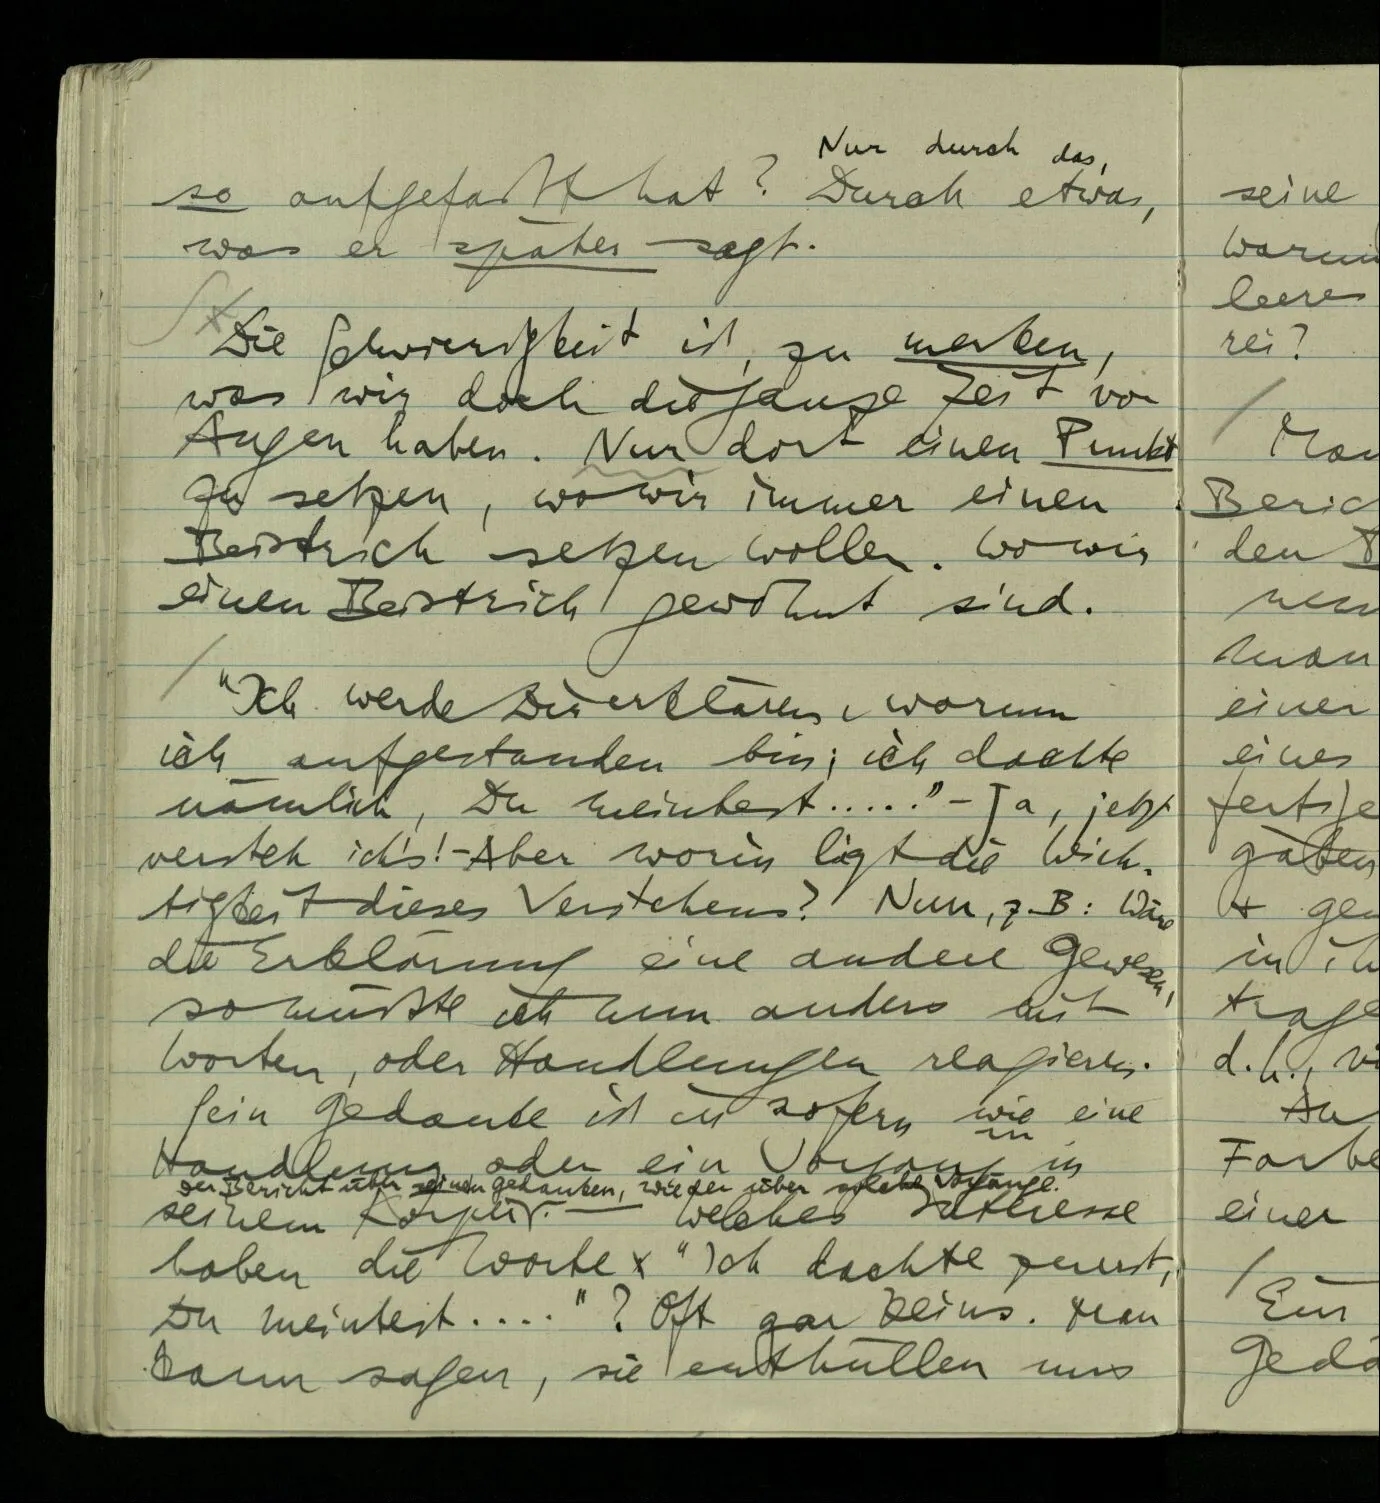 Nur durch das,
so aufgefaßt hat? Durch etwas,
was er später sagt.
Die Schwierigkeit ist, zu merken,
was wir doch die ganze Zeit vor
Augen haben. Nur dort einen Punkt
zu setzen, wo wir immer einen
Beistrich setzen wollen. Wo wir
einen Beistrich gewöhnt sind.
"Ich werde Dir erklären, warum
ich aufgestanden bin; ich dachte
nämlich, Du meintest....." – Ja, jetzt
versteh ich's! – Aber worin liegt die Wich-
tigkeit dieses Verstehens? Nun, z.B: Wäre
die Erklärung eine andere gewesen,
so müßte ich nun anders mit
Worten, oder Handlungen reagieren.
Sein Gedanke ist in sofern wie eine
Handlung oder ein Vorgang in
der Bericht über seinen Gedanken, wie der über solche Vorgänge.
seinem Körper. — Welches Interesse
haben die Worte "Ich dachte zuerst,
Du meintest...."? Oft gar keins. Man
kann sagen, sie enthüllen uns
seine
warum
leeres
rei?
Man
Beric
den B
man
einer
eines
fertige
gäben
gen
in ih
trage
d.h., vi
Farbe
einer
Ein
Gedä